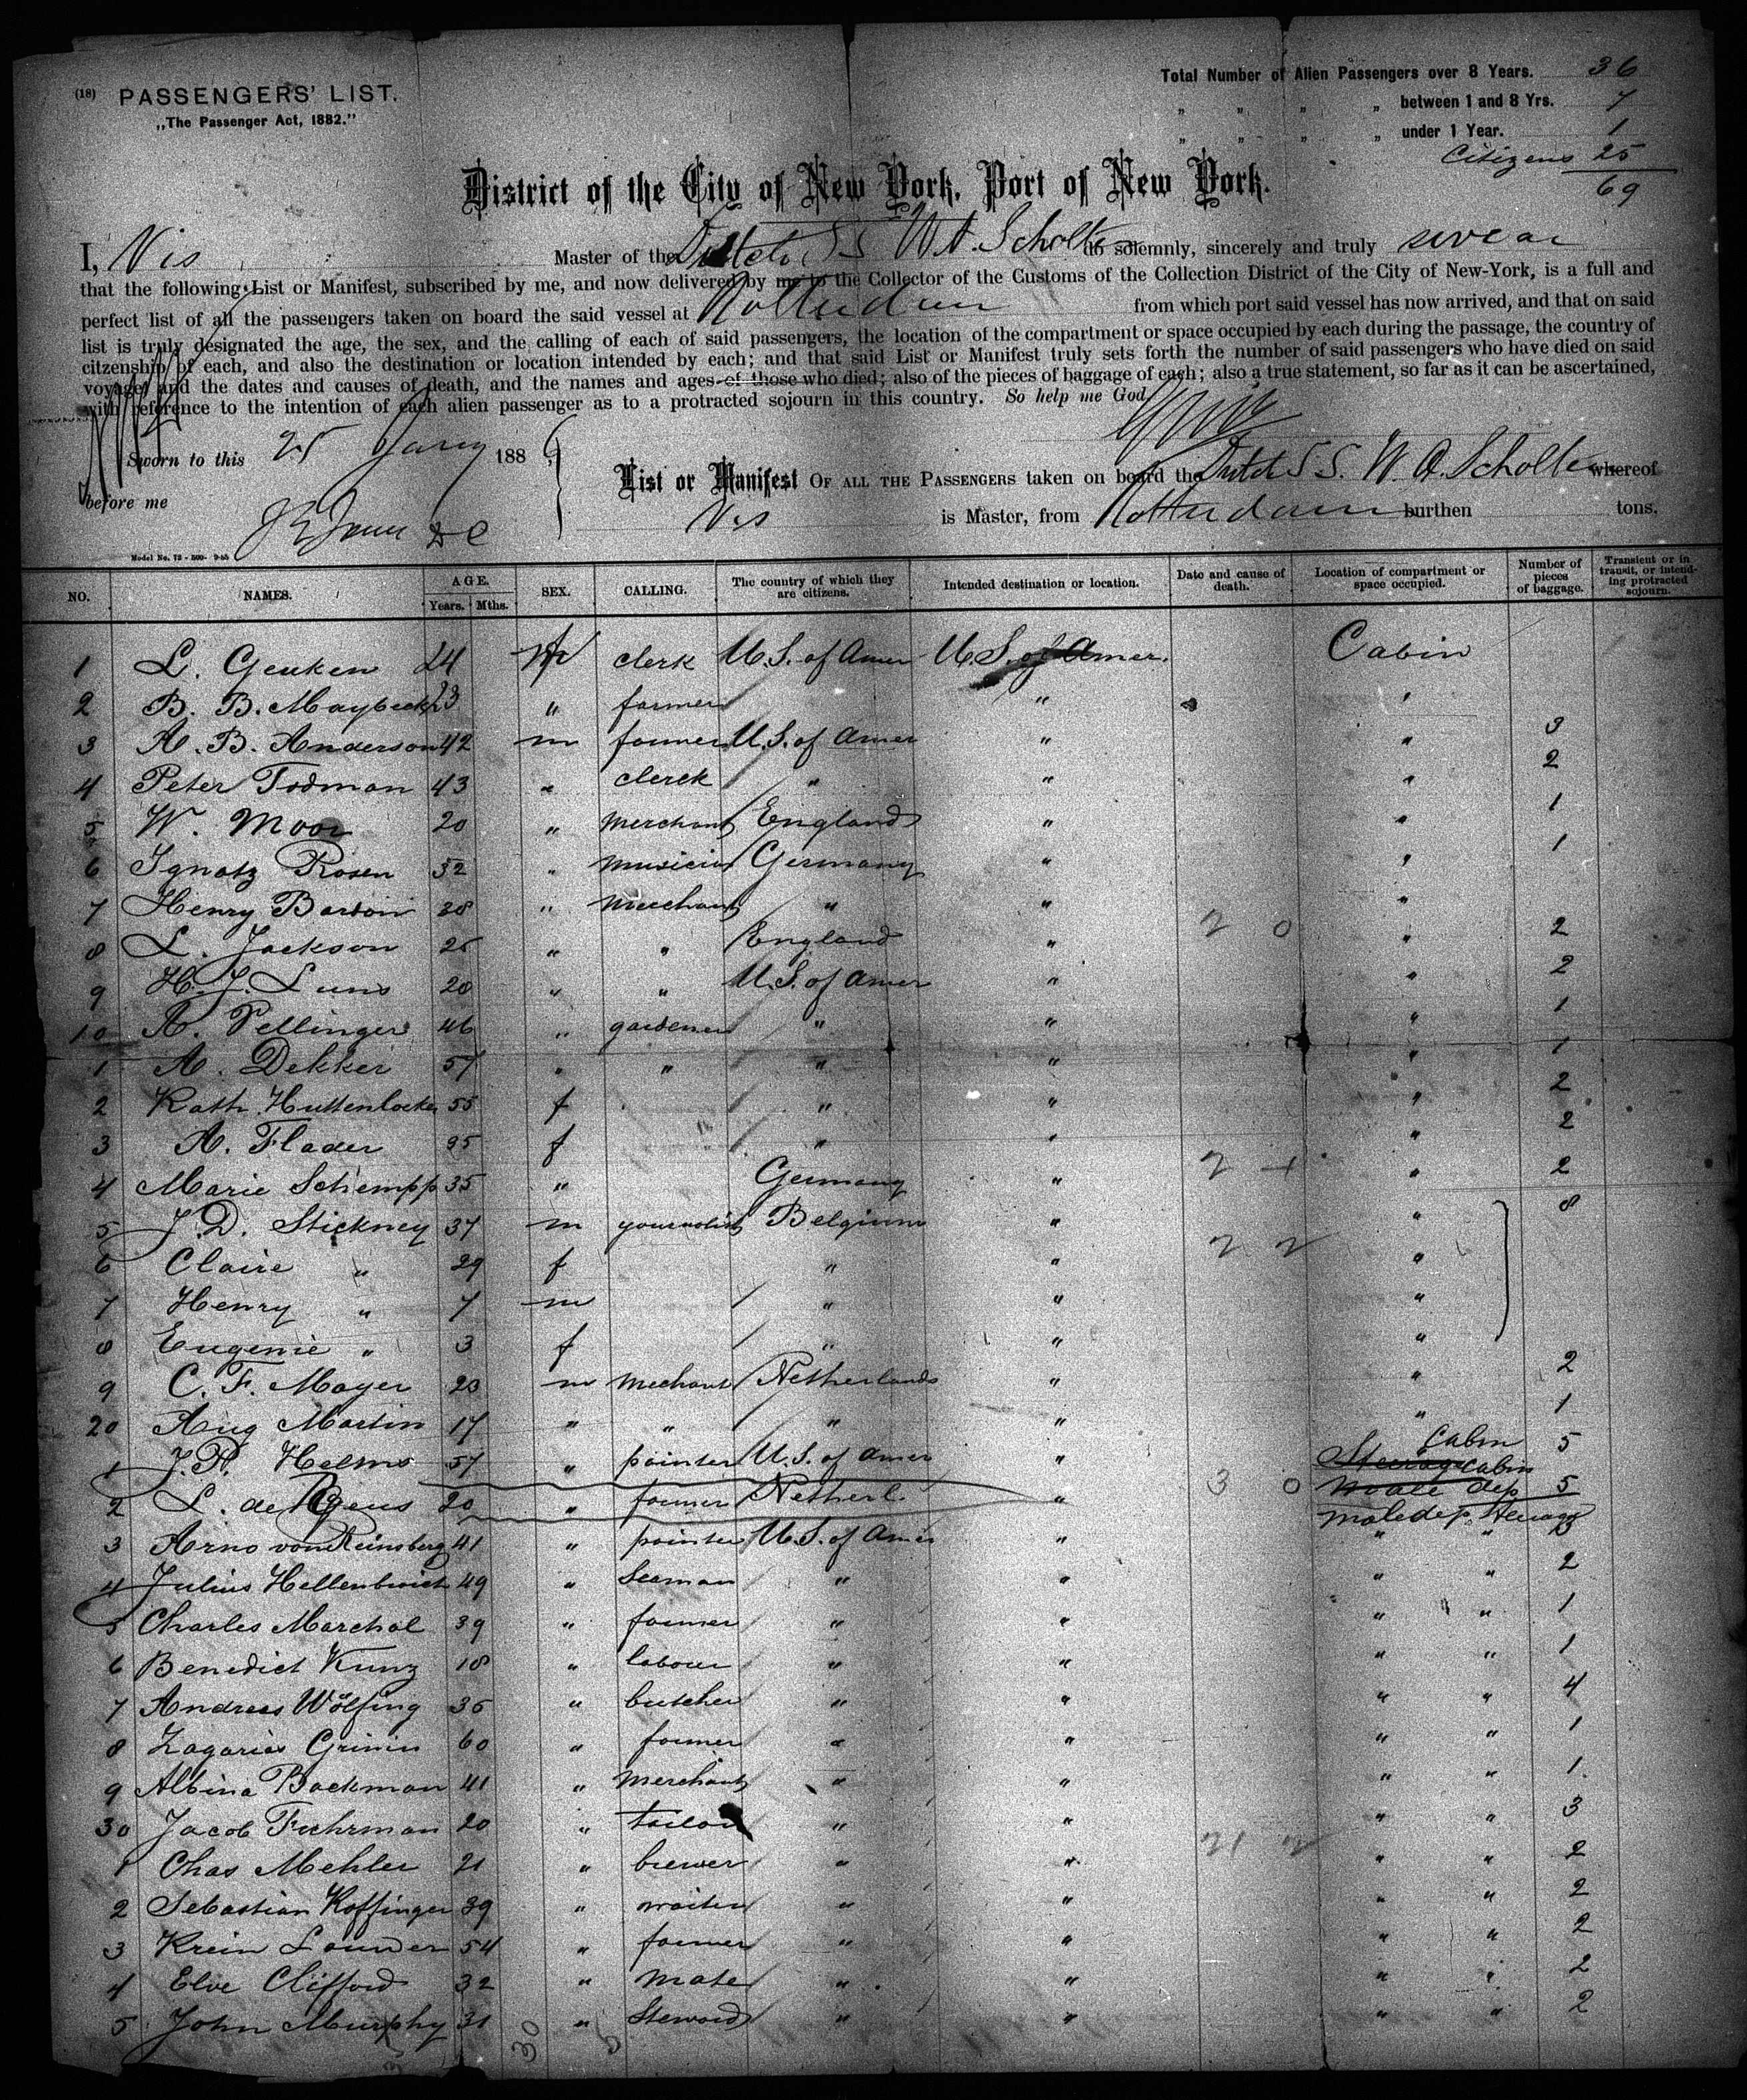 (18) PASSENGERS' LIST.
„The Passenger Act, 1882."
Total Number of Alien Passengers over 8 Years. 36
„ „ „ „ between 1 and 8 Yrs. 7
„ „ „ „ under 1 Year. 1
Citizens 25
69
District of the City of New York, Port of New York.
I, Vis Master of the Dutch SS W. A. Scholten do solemnly, sincerely and truly swear
that the following List or Manifest, subscribed by me, and now delivered by me to the Collector of the Customs of the Collection District of the City of New-York, is a full and
perfect list of all the passengers taken on board the said vessel at Rotterdam from which port said vessel has now arrived, and that on said
list is truly designated the age, the sex, and the calling of each of said passengers, the location of the compartment or space occupied by each during the passage, the country of
citzenship of each, and also the destination or location intended by each; and that said List or Manifest truly sets forth the number of said passengers who have died on said
voyage, and the dates and causes of death, and the names and ages of those who died; also of the pieces of baggage of each; also a true statement, so far as it can be ascertained,
with reference to the intention of each alien passenger as to a protracted sojourn in this country. So help me God.
Sworn to this 25 Jany 188
before me
List or Manifest OF ALL THE PASSENGERS taken on board the Dutch S S. W. A. Scholten whereof
Vis is Master, from Rotterdam burthen tons.
Model No. 72 - 500- 9-85
NO. NAMES. AGE. Years. Mths. SEX. CALLING. The country of which they are citizens. Intended destination or location. Date and cause of death. Location of compartment or space occupied. Number of pieces of baggage. Transient or in transit, or intending protracted sojourn.
1 L. Geuken 24 clerk U.S. of Amer U.S. of Amer. Cabin
2 B. B. Maybeck 23 " farmer " "
3 A. B. Anderson 42 m farmer U.S. of Amer " " 3
4 Peter Todman 43 " clerck " " " 2
5 W. Moor 20 " merchant England " " 1
6 Ignatz Rosen 52 " musician Germany " " 1
7 Henry Bardoni 38 " merchant " " "
8 L. Jackson 25 " " England " 2 0 " 2
9 H. J. Luns 20 " " U.S. of Amer " " 2
10 A. Pellinger 46 " gardener " " " 1
1 A. Dekker 57 " " " " " 1
2 Kath. Huttenlocker 55 f " " " 2
3 A. Flader 35 f " " " 2
4 Marie Schempp 35 " Germany " 2 1 " 2
5 J. D. Stickney 37 m yournalist Belgium " " 8
6 Claire " 29 f " " 2 2 "
7 Henry " 7 m " " "
8 Eugenie " 3 f " " "
9 C. F. Mayer 23 m mechant Netherlands " " 2
20 Aug Martin 17 " " " " " 1
1 J. H. Helms 57 " painter U.S. of Amer " Steerage Cabin 5
2 L. de Geus 20 " farmer Netherl. " 3 0 male dep Cabin 5
3 Arno von Reinsberg 41 " painter U.S. of Amer " male dep. steerage
4 Julius Hellenbroich 49 " Seaman " " " " 2
5 Charles Marchal 39 " farmer " " " " 1
6 Benedict Kunz 18 " labourer " " " " 1
7 Andreas Wölfing 36 " butcher " " " " 4
8 Zagarias Grimm 60 " farmer " " " " 1
9 Albina Backman 41 " merchant " " " " 1
30 Jacob Fuhrman 20 " tailor " " " " 3
1 Chas Mehler 21 " brewer " " 21 2 " " 2
2 Sebastian Koffinger 39 " waiter " " " " 2
3 Krein Lounder 54 " farmer " " " " 2
4 Elve Clifford 32 " mate " " " " 2
5 John Murphy 31 " Steward " " " " 2
30 5